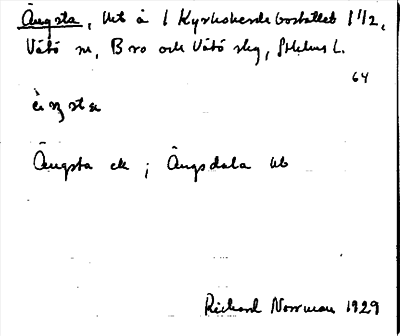 Ängsta, ut å 1 Kyrkoherdebostället 1 1/2,
Vätö sn, Bro och Vätö skg, Sthlms l.
64
Ängsta ek ; Ängsdala ub
Richard Norrman 1929